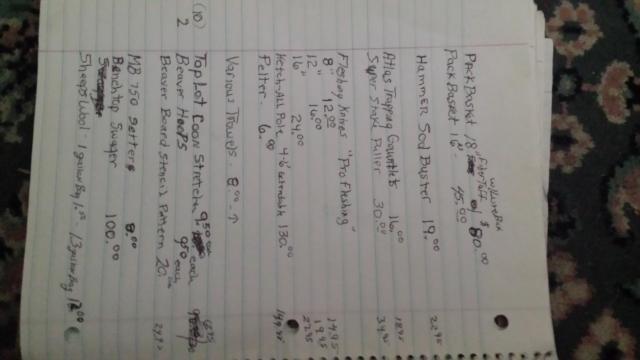 w/LureBox
Pack Basket 18" FiberTuff $ 80.00
Pack Basket 16" 45.00
Hammer Sod Buster 19.00 22.95
Atlas Trapping Gauntlets 16.00 18.95
Super Stake Puller 30.00 34.95
Fleshing Knives "Pro Fleshing"
8" 12.00 14.95
12" 16.00 19.95
16" 24.00 27.95
Ketch-All Pole 4-6 extendable 130.00 149.95
Felter. 6.00
Various Trowels. 8.00 ↑
(10) Top Lot Coon Stretchers 9.50 each
2 Beaver Hoops 9.50 each
Beaver Board Stencil Pattern 20.00
MB 750 Setters 8.00
Benchtop Swager 100.00
Sheeps Wool - 1 gallon Bag